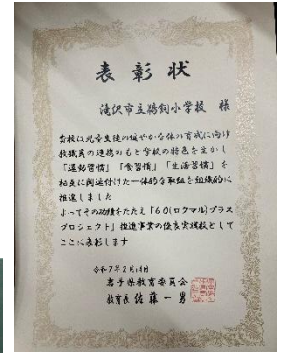 表彰状
滝沢市立鵜飼小学校 様
貴校は児童生徒の健やかな体の育成に向け
教職員の連携のもと学校の特色を生かし
「運動習慣」「食習慣」「生活習慣」を
相互に関連付けた一体的な取組を組織的に
推進しました
よってその功績をたたえ「60(ロクマル)プラス
プロジェクト」推進事業の優良実践校として
ここに表彰します
令和7年2月18日
岩手県教育委員会
教育長 佐藤一男